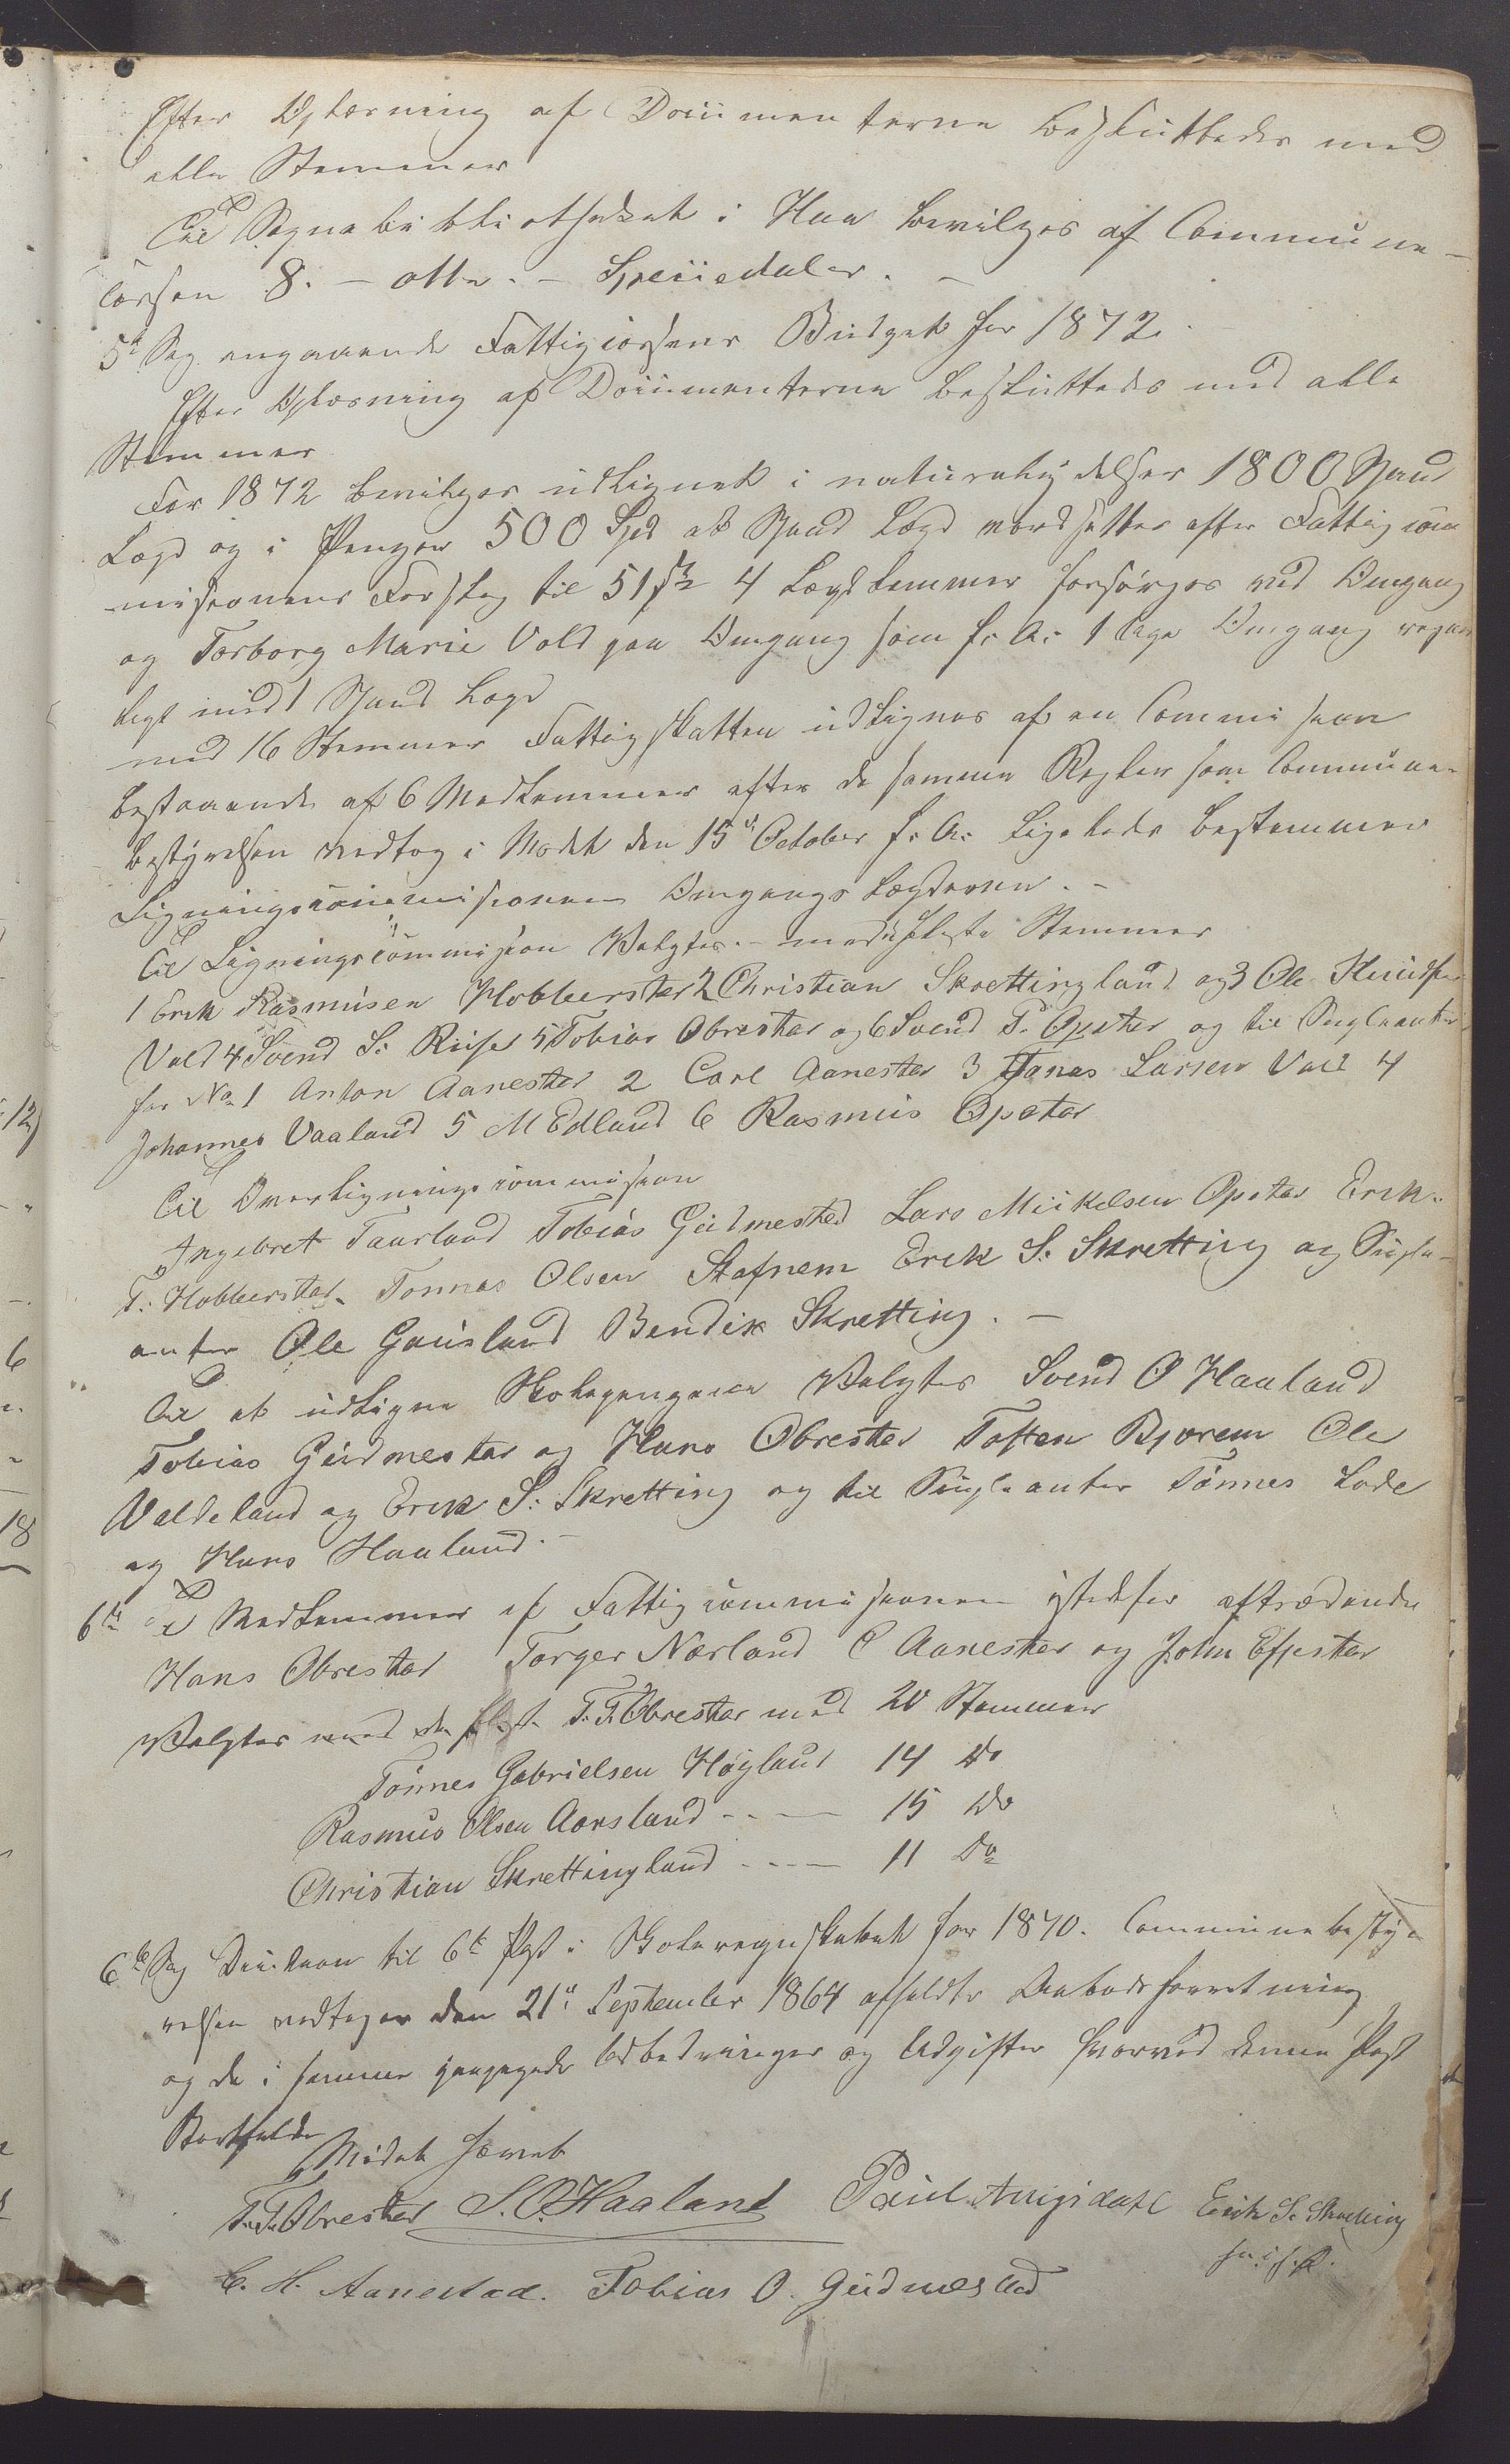 Efter Oplæsning af Documenterne besluttedes med
alle Stemmer
Til Sognebibliotheket i Haa bevilges af Commune-
cassen 8. - otte. - Speciedaler. -
5te Sag angaaende Fattigcassens Budget for 1872.
Efter Oplæsning af Documenterne besluttedes med alle
Stemmer
For 1872 bevilges udlignet i naturalydelser 1800 Spand
Lægd og i Penger 500 Spd at Spand Lægd værdsættes efter Fattigcom
misionens Forslag til 51 ß 4 Lægdslemmer forsørges ved Omgang
og Torborg Marie Vold paa Omgang som f. A. 1 Uges Omgang regnes
ligt med 1 Spand Lægd
med 16 Stemmer Fattigskatten udlignes af en Commision
bestaaende af 6 Medlemmer efter de samme Regler som Commune-
bestyrelsen vedtog i Mødet den 15de October f. A. Ligeledes bestemmer
Ligningscommisionen Omgangs Lægderne. -
Til Ligningscommision Valgtes - med fleste Stemmer
1 Erik Rasmusen Hobberstad 2 Christian Skrettingland og 3 Ole Knudsen
Vold 4 Svend S. Riise 5 Tobias Obrestad og 6 Svend T. Opstad og til Supleanter
for No 1 Anton Aanestad 2 Carl Aanestad 3 Jonas Larsen Vold 4
Johannes Vaaland 5 M Edland 6 Rasmus Opstad
Til Overligningscommision
Ingebret Taarland Tobias Gudmestad Lars Mikkelsen Opstad Erik
T. Hobberstad Tonnes Olsen Stafnem Erik S. Skretting og Suple-
anter Ole Gausland Bendik Skretting. -
Til at udligne Skolepengene Valgtes Svend O Haaland
Tobias Gudmestad og Hans Obrestad Tosten Bjorem Ole
Valdeland og Erik S. Skretting og til Supleanter Tönnes Lode
og Hans Haaland. -
6te Til Medlemmer af Fattigcommisionen istedefor aftrædende
Hans Obrestad Torger Nærland C Aanestad og John Efjestad
Valgtes med de fleste T. T. Obrestad med 20 Stemmer
Tönnes Gabrielsen Høyland 14 Do
Rasmus Olsen Aarsland - - - 15 Do
Christian Skrettingland - - - 11 Do
6te Sag Decision til 6te Post i Skoleregnskabet for 1870. Communebesty-
relsen vedtager den 21de September 1864 afholdte Aabodsforretning
og de i samme paapegede Udbedringer og Udgifter hvorved denne Post
Bortfalder
Mödet hævet
T. T. Obrestad S. O. Haaland Paul Erik S. Skretting
C. H. Aanestad. Tobias O. Gudmestad